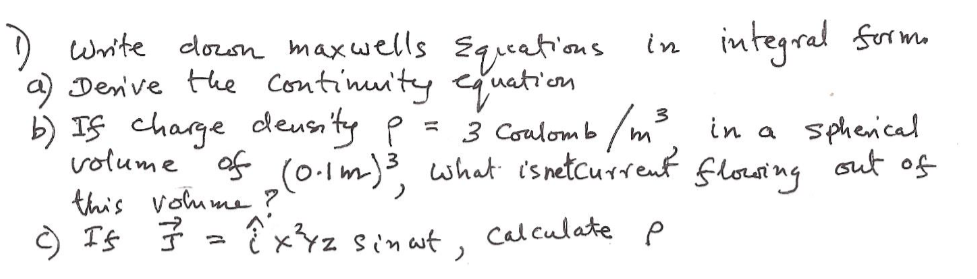 1) Write down maxwells Equations in integral form.
a) Derive the Continuity equation
b) If charge density ρ = 3 Coulomb/m³, in a spherical
volume of (0.1m)³, what is net current flowing out of
this volume?
c) If J⃗ = î x²yz sin wt, Calculate ρ